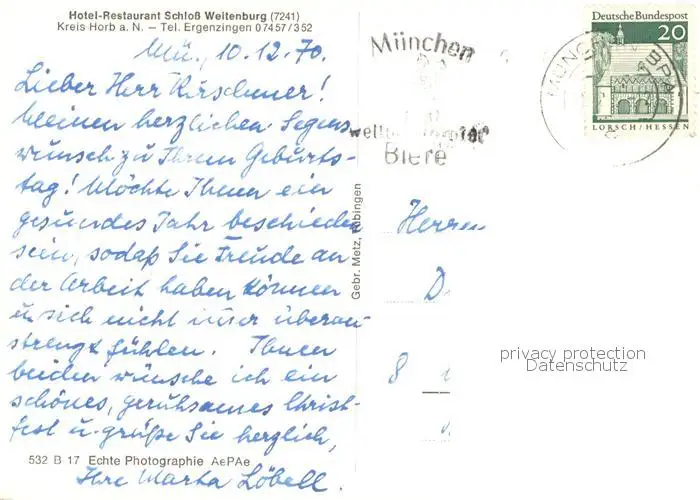 Hotel-Restaurant Schloß Weitenburg (7241)
Kreis Horb a. N. – Tel. Ergenzingen 07457/352
Mü., 10.12.70.
Lieber Herr Kirschner!
Meinen herzlichen Segens-
wunsch zu Ihrem Geburts-
tag! Möchte Ihnen ein
gesundes Jahr beschieden
sein, sodaß Sie Freude an
der Arbeit haben können
u. sich nicht immer überan-
strengt fühlen. Ihnen
beiden wünsche ich ein
schönes, geruhsames Christ-
fest u. grüße Sie herzlich,
532 B 17 Echte Photographie AePAe
Ihre Marta Löbell.
Gebr. Metz, Tübingen
München
Biere
Deutsche Bundespost
20
LORSCH/HESSEN
Herrn
D
8
privacy protection
Datenschutz